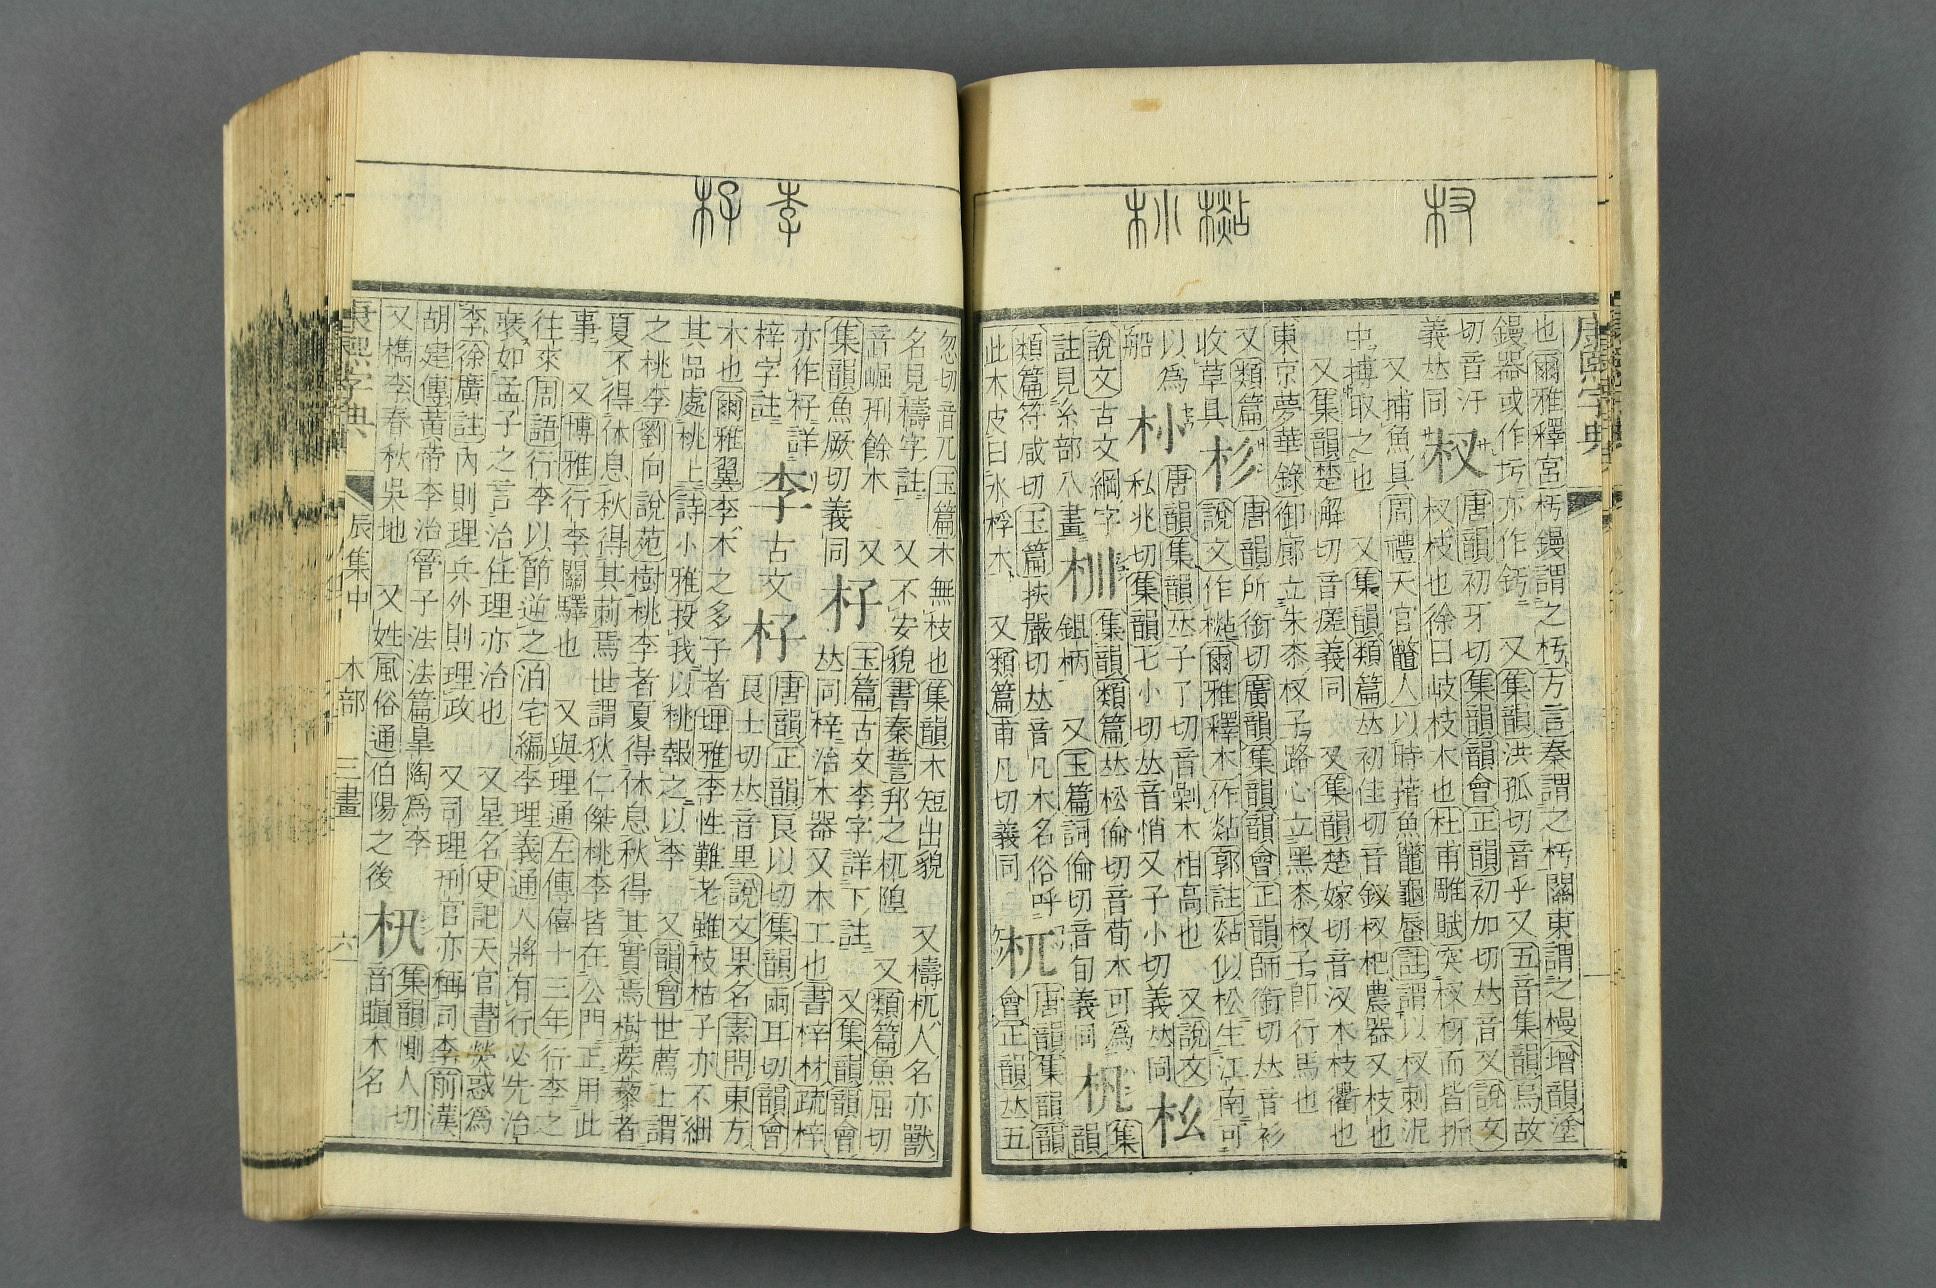 康熙字典
也爾雅釋宮杇鏝謂之杇方言秦謂之杇關東謂之槾增韻塗
鏝器或作圬亦作釫 又集韻洪孤切音乎又五音集韻烏故
切音汙
義𠀤同
杈
唐韻初牙切集韻韻會正韻初加切𠀤音叉說文
杈枝也徐曰岐枝木也杜甫雕賦突杈枒而皆折
又捕魚具周禮天官鼈人以時揩魚鼈龜蜃註謂以杈刺泥
中搏取之也 又集韻類篇𠀤初佳切音釵杈杷農器又枝也
又集韻楚解切音瘥義同 又集韻楚嫁切音汊木枝衢也
東京夢華錄御廊立朱桼杈子路心立黑桼杈子卽行馬也
又類篇
收草具
杉
唐韻所銜切廣韻集韻韻會正韻師銜切𠀤音衫
說文作樧爾雅釋木作煔郭註煔似松生江南可
以為
船
唐韻集韻𠀤子了切音剿木相高也 又說文
私兆切集韻七小切𠀤音悄又子小切義𠀤同
說文古文綱字
註見糸部八畫
杊
集韻類篇𠀤松倫切音荀木可為
鉏柄 又玉篇詞倫切音旬義同
杋
集
韻
類篇符咸切玉篇扶嚴切𠀤音凡木名俗呼
此木皮曰水桴木 又類篇甫凡切義同
杌
唐韻集韻韻
會正韻𠀤五
忽切音兀玉篇木無枝也集韻木短出貌 又檮杌人名亦獸
名見檮字註 又不安貌書秦誓邦之杌隉 又類篇魚屈切
音崛刖餘木 又
集韻魚厥切義同
杍
玉篇古文李字詳下註 又集韻會
𠀤同梓治木器又木工也書梓材疏梓
亦作杍詳
梓字註
李
古文
杍
唐韻正韻良以切集韻兩耳切韻會
良士切𠀤音里說文果名素問東方
木也爾雅翼李木之多子者埤雅李性難老雖枝枯子亦不細
其品處桃上詩小雅投我以桃報之以李 又韻會世薦士謂
之桃李劉向說苑樹桃李者夏得休息秋得其實焉樹蒺藜者
夏不得休息秋得其莿焉世謂狄仁傑桃李皆在公門正用此
事 又博雅行李關驛也 又與理通左傳僖十三年行李之
往來周語行李以節逆之泊宅編李理義通人將有行必先治
裝如孟子之言治任理亦治也 又星名史記天官書熒惑為
李徐廣註內則理兵外則理政 又司理刑官亦稱司李前漢
胡建傳黃帝李治管子法法篇皐陶為李
又檇李春秋吳地 又姓風俗通伯陽之後
集韻惻人切
音瞋木名
康熙字典
辰集中 木部 三畫 六